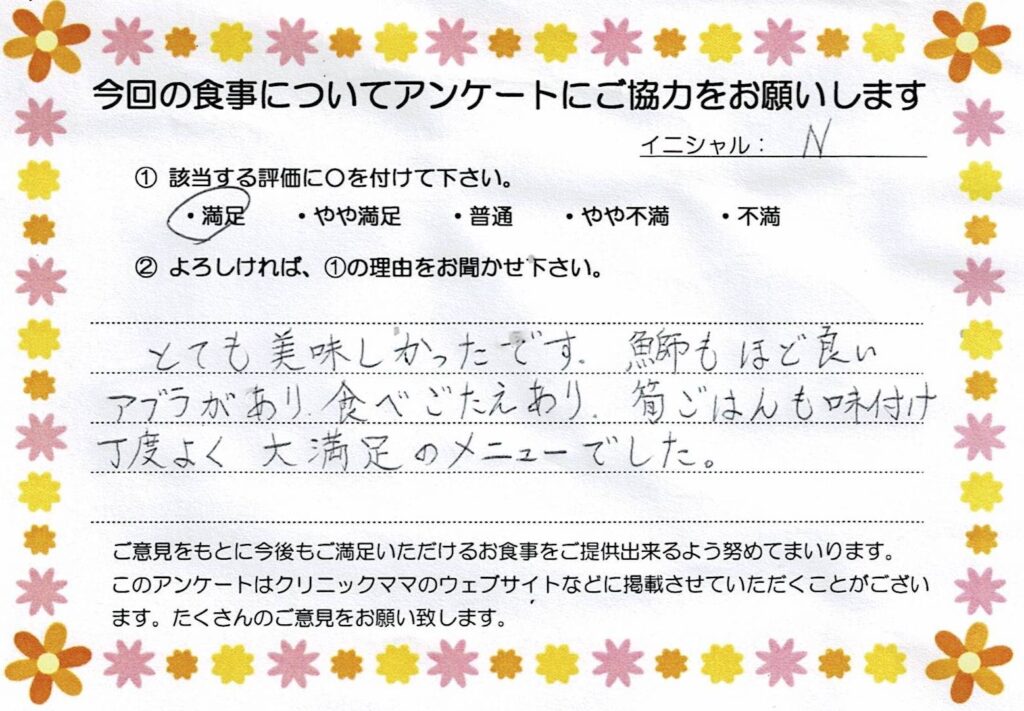 今回の食事についてアンケートにご協力をお願いします
イニシャル： N
① 該当する評価に〇を付けて下さい。
・満足 ・やや満足 ・普通 ・やや不満 ・不満
② よろしければ、①の理由をお聞かせ下さい。
とても美味しかったです. 鰤もほど良い
アブラがあり. 食べごたえあり. 筍ごはんも味付け
丁度よく 大満足のメニューでした。
ご意見をもとに今後もご満足いただけるお食事をご提供出来るよう努めてまいります。
このアンケートはクリニックママのウェブサイトなどに掲載させていただくことがござい
ます。たくさんのご意見をお願い致します。